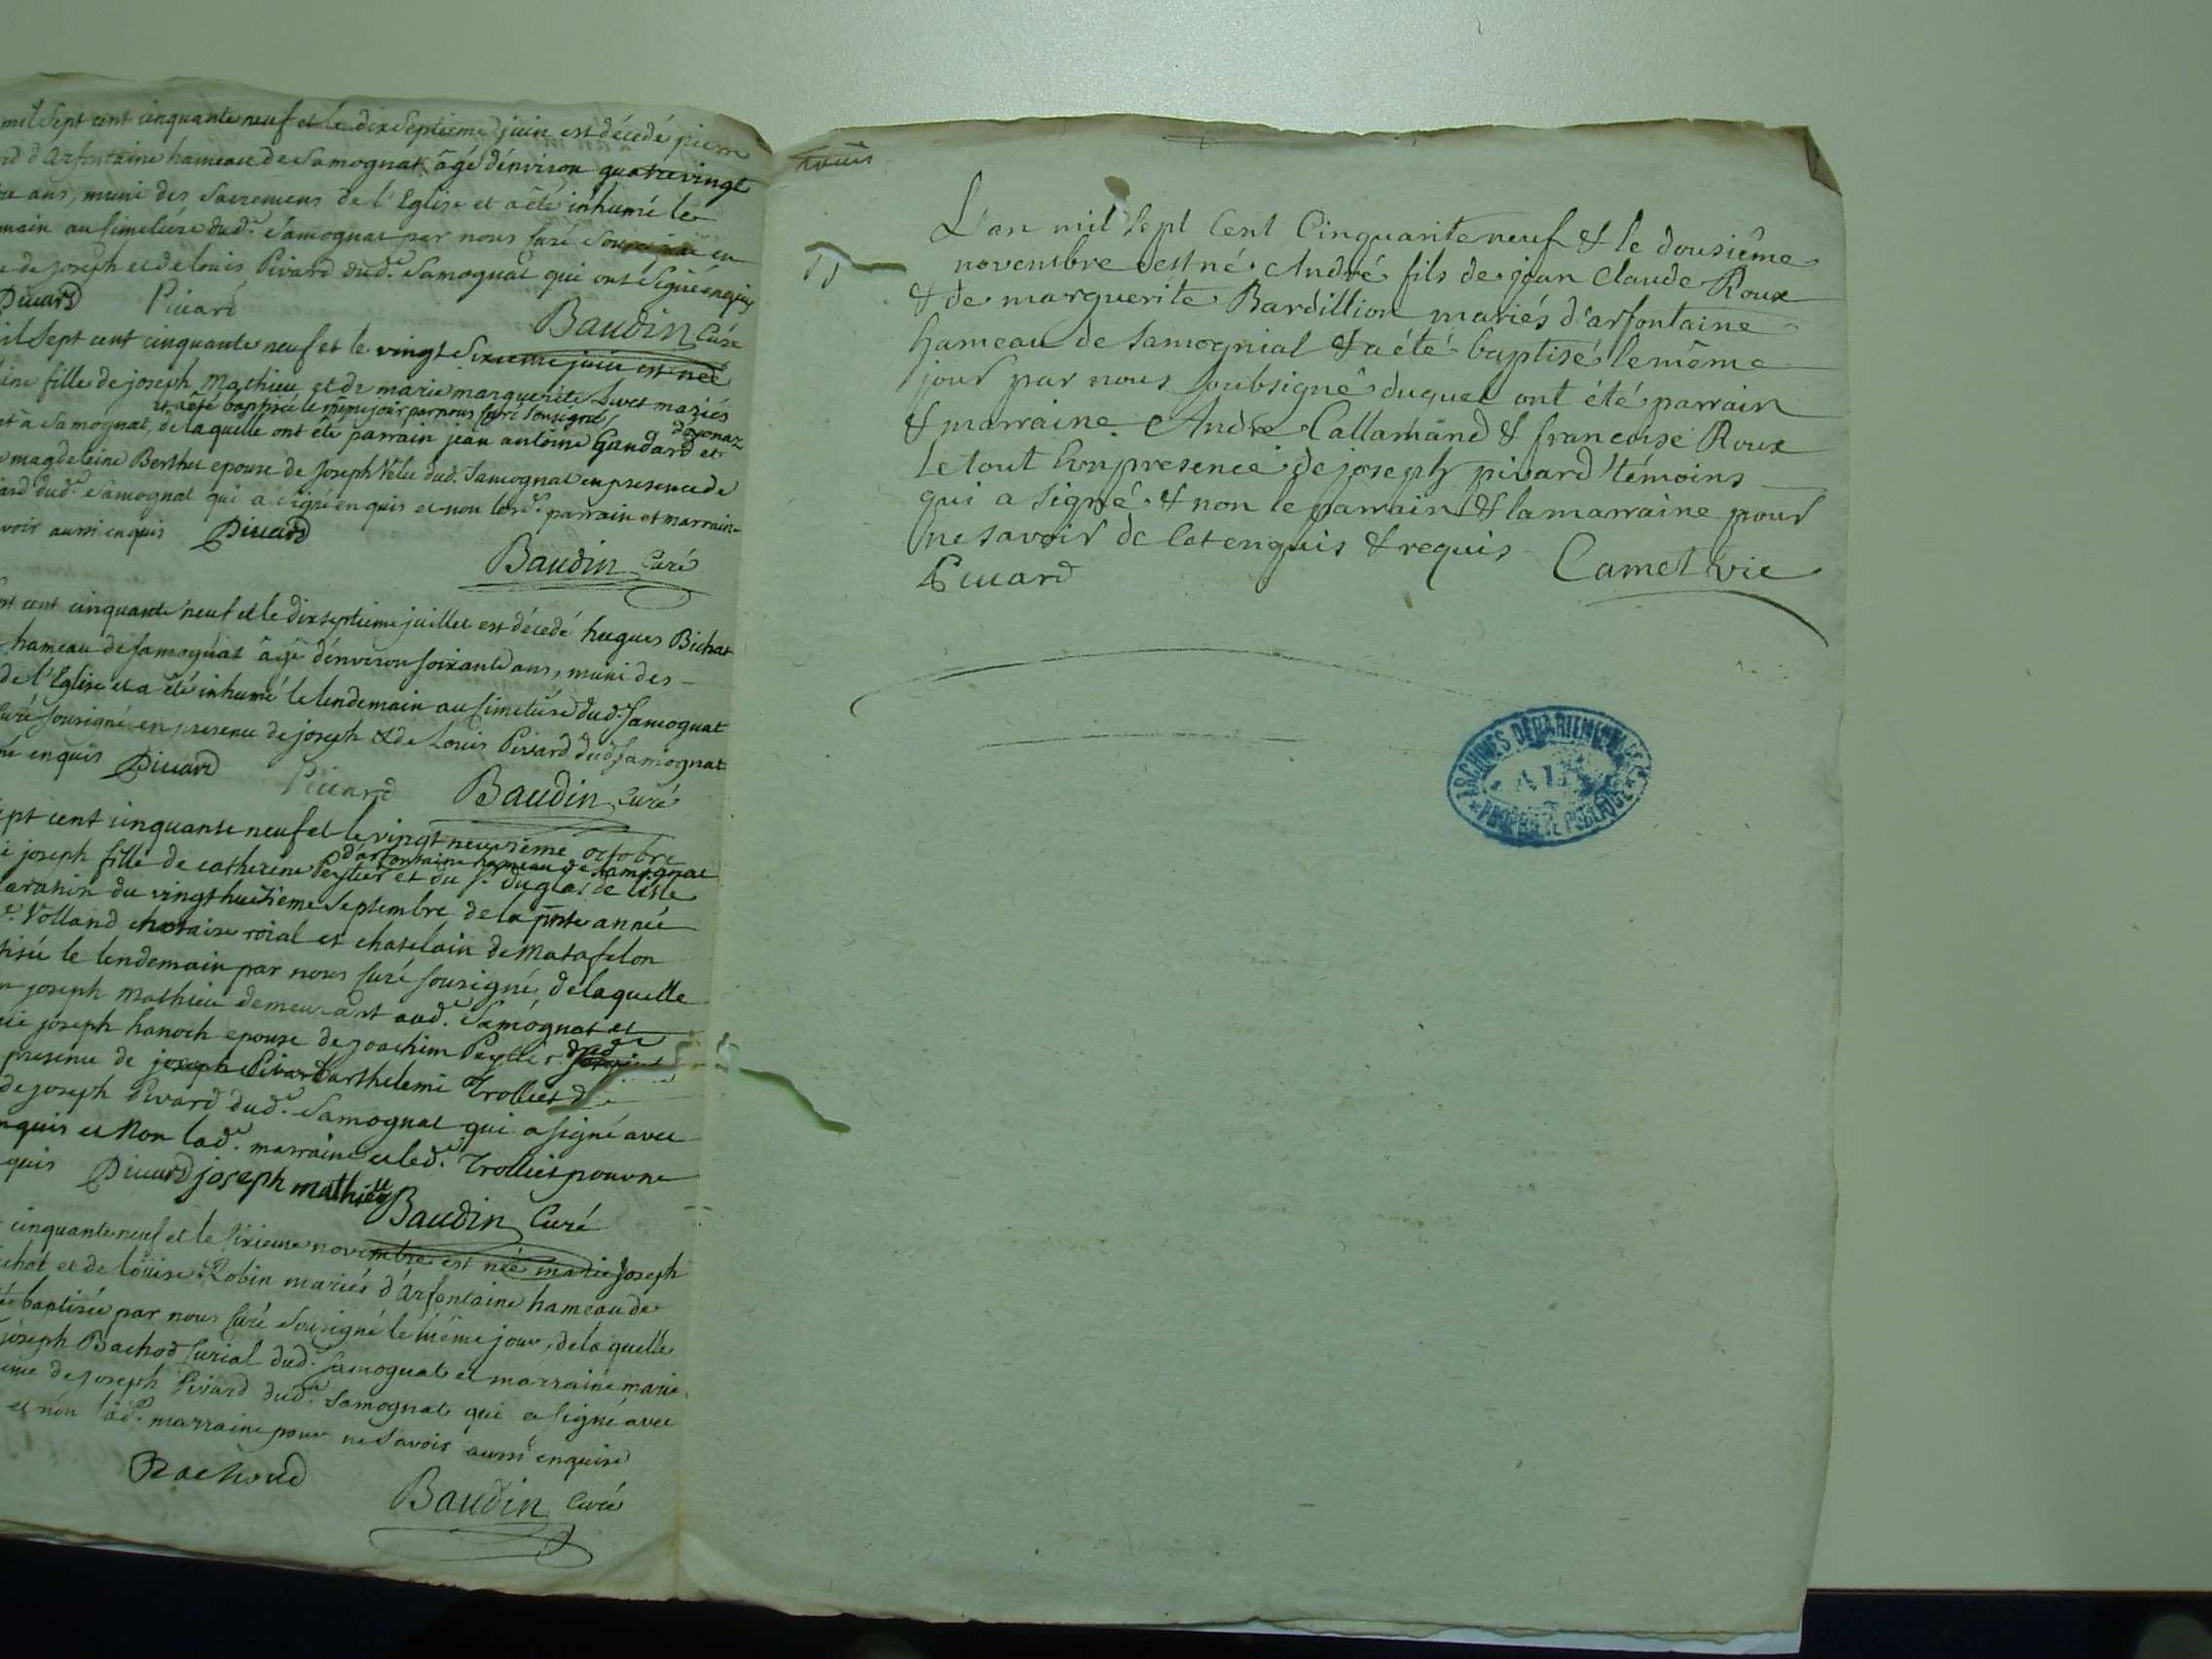 mil Sept cent cinquante neuf et le dix Septieme juin est décedé pierre
d'Arfontaine hameau de Samognat âgé d'environ quatrevingt
ans, muni des Sacremens de l'Eglise et a été inhumé le
au simetiére dud.t Samognat par nous Curé Sousigné en
de joseph et de louis Pivard dud.t Samognat qui ont Signé enquis
Pivard Pivard
Baudin Curé
Sept cent cinquante neuf et le vingt Sixieme juin est née
fille de joseph Mathieu et de marie marguerite Juret mariés
et a été baptisée le même jour par nous Curé Sousigné d'oyonaz
à Samognat, de laquelle ont été parrain jean antoine Gaudard et
magdeleine Berthet epouse de Joseph Velu dud. Samognat en presence de
dud.t Samognat qui a signé enquis et non lesd.t parrain et marraine
voir aussi enquis Pivard
Baudin Curé
cent cinquante neuf et le dixseptieme juillet est décedé hugues Bichat
hameau de Samognat âgé d'environ soixante ans, muni des
de l'Eglise et a été inhumé le lendemain au simetiére dud. Samognat
Curé Sousigné en presence de joseph & de Louis Pivard dud Samognat
enquis Pivard Pivard Baudin Curé
sept cent cinquante neuf et le vingt neuvième octobre
d'arfontaine hameau de Samognat
joseph fille de catherine Peyller et du S.r duglas de lisle
du vingt huitieme Septembre de la pnte année
Volland chataire roial et chatelain de Matafelon
le lendemain par nous Curé sousigné, de laquelle
joseph Mathieu demeurant aud.t Samognat et
joseph hanoch epouse de joachim Peyller dud.t
presence de joseph Pivard Barthelemi Trolliet
de joseph Pivard dud.t Samognat qui a signé avec
enquis et Non lad.t marraine et led.t Trolliet pour ne
quis Pivard joseph mathieu
Baudin Curé
cinquante neuf et le sixieme novembre est née marie Joseph
et de loüise Robin mariés d'Arfontaine hameau de
baptisée par nous Curé Sousigné le même jour, de la quelle
joseph Bachod Curial dud.t Samognat et marraine marie
de joseph Pivard dud.t Samognat qui a signé avec
et non lad.t marraine pour ne savoir aussi enquise
Bachoud
Baudin Curé
L'an mil Sept Cent Cinquante neuf & le dousiême
novembre est né André fils de jean Claude Roux
& de marguerite Bardillion mariés d'arfontaine
hameau de Samognial & a été baptisé le même
jour par nous Soubsigné duquel ont été parrain
& marraine André Callamand & francoise Roux
le tout En presence de joseph pivard témoins
qui a signé & non le parrain & la marraine pour
ne savoir de Cet enquis & requis Camet vic
Pivard
ARCHIVES DEPARTEMENTALES
AIN
PROPRIETE PUBLIQUE